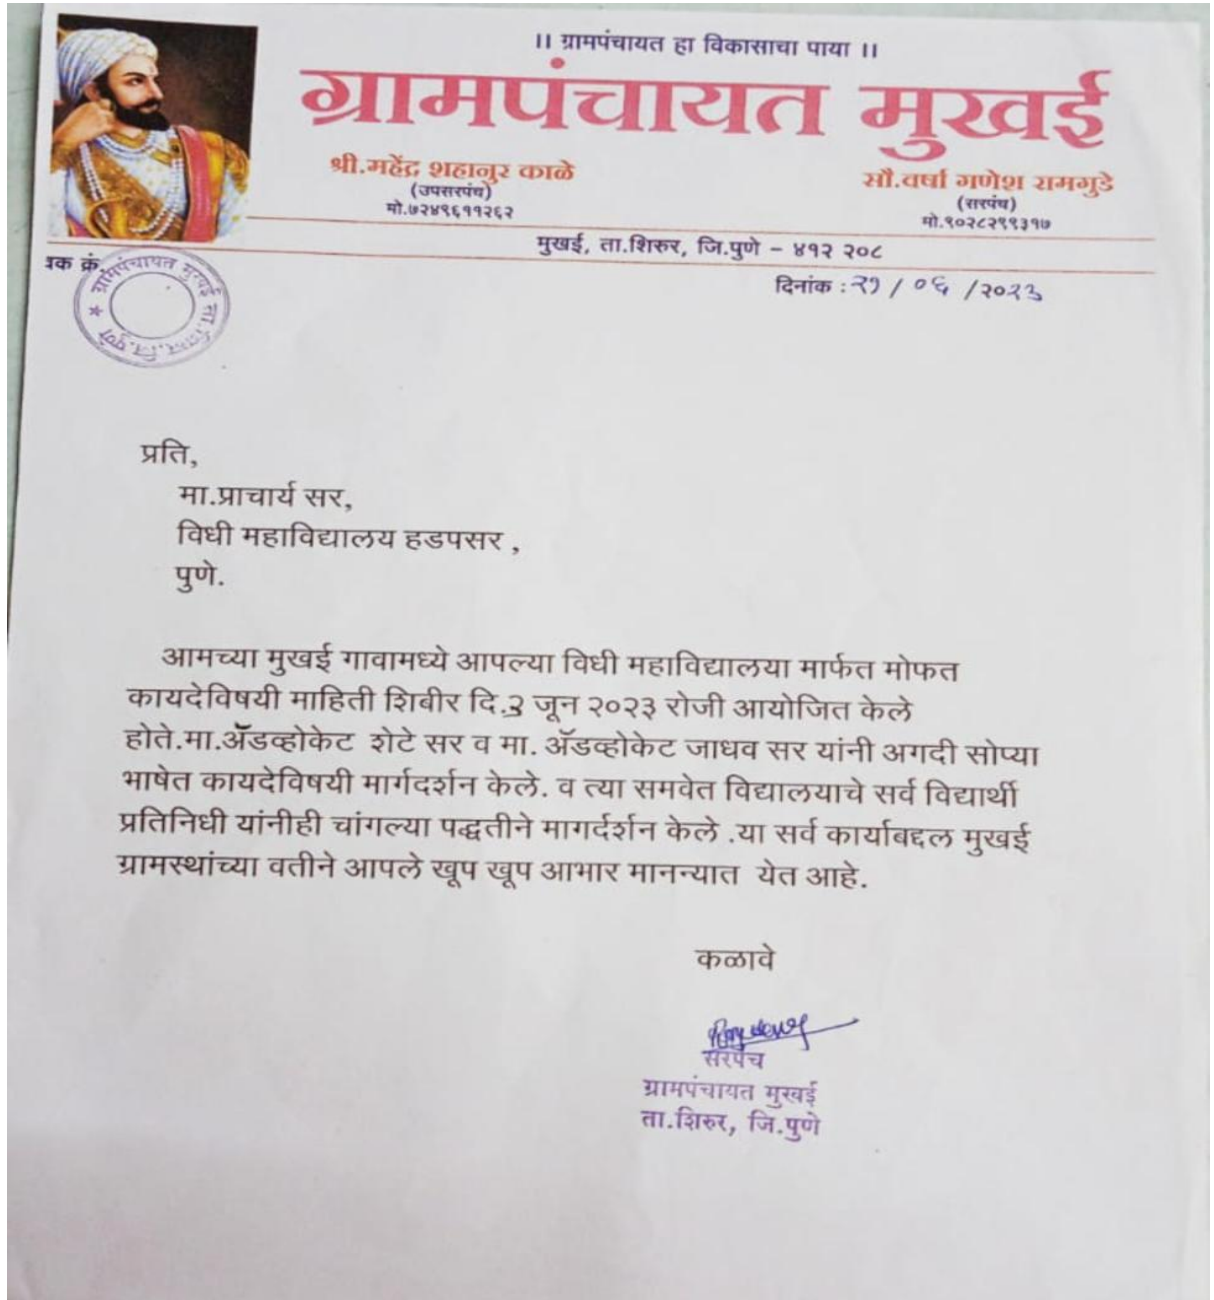 ।। ग्रामपंचायत हा विकासाचा पाया ।।
ग्रामपंचायत मुखई
श्री.महेंद्र शहानुर काळे
(उपसरपंच)
मो.७२४९६११२६२
सौ.वर्षा गणेश रामगुडे
(सरपंच)
मो.९०२८२९९३१७
मुखई, ता.शिरुर, जि.पुणे - ४१२ २०८
वक क्रं.
ग्रामपंचायत मुखई ता.शिरुर.जि.पुणे
दिनांक : २१ / ०६ /२०२३
प्रति,
मा.प्राचार्य सर,
विधी महाविद्यालय हडपसर ,
पुणे.
आमच्या मुखई गावामध्ये आपल्या विधी महाविद्यालया मार्फत मोफत
कायदेविषयी माहिती शिबीर दि.३ जून २०२३ रोजी आयोजित केले
होते.मा.ॲडव्होकेट शेटे सर व मा. ॲडव्होकेट जाधव सर यांनी अगदी सोप्या
भाषेत कायदेविषयी मार्गदर्शन केले. व त्या समवेत विद्यालयाचे सर्व विद्यार्थी
प्रतिनिधी यांनीही चांगल्या पद्धतीने मागर्दर्शन केले .या सर्व कार्याबद्दल मुखई
ग्रामस्थांच्या वतीने आपले खूप खूप आभार मानन्यात येत आहे.
कळावे
सरपंच
ग्रामपंचायत मुखई
ता.शिरुर, जि.पुणे